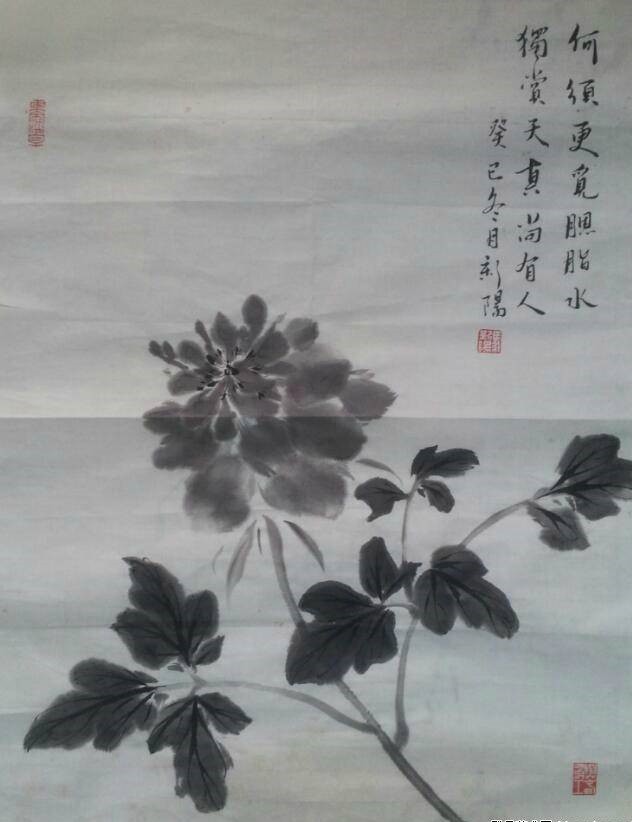 何須更覓胭脂水
獨賞天真尚有人
癸巳冬月新陽